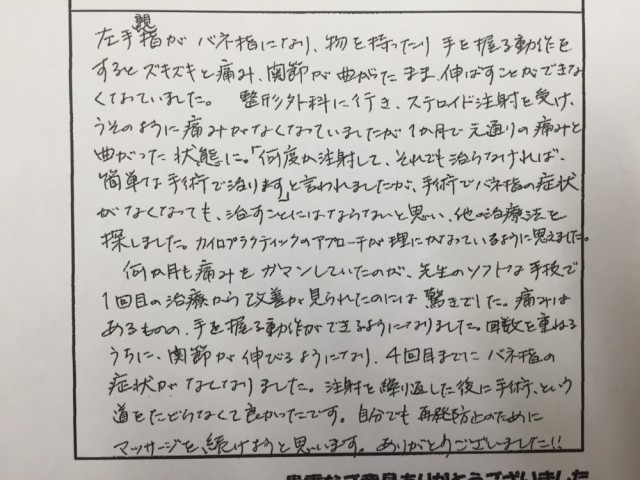 左手親指がバネ指になり、物を持ったり手を握る動作を
するとズキズキと痛み、関節が曲がったまま、伸ばすことができな
くなっていました。 整形外科に行き、ステロイド注射を受け、
うそのように痛みがなくなっていましたが1か月で元通りの痛みと
曲がった状態に。「何度か注射して、それでも治らなければ、
簡単な手術で治ります」と言われましたが、手術でバネ指の症状
がなくなっても、治すことにはならないと思い、他の治療法を
探しました。カイロプラクティックのアプローチが理にかなっているように思えました。
何か月も痛みをガマンしていたのが、先生のソフトな手技で
1回目の治療から改善が見られたのには驚きでした。痛みは
あるものの、手を握る動作ができるようになりました。回数を重ねる
うちに、関節が伸びるようになり、4回目までにバネ指の
症状がなくなりました。注射を繰り返した後に手術、という
道をたどらなくて良かったです。自分でも再発防止のために
マッサージを続けようと思います。ありがとうございました!!
貴重なご意見ありがとうございました